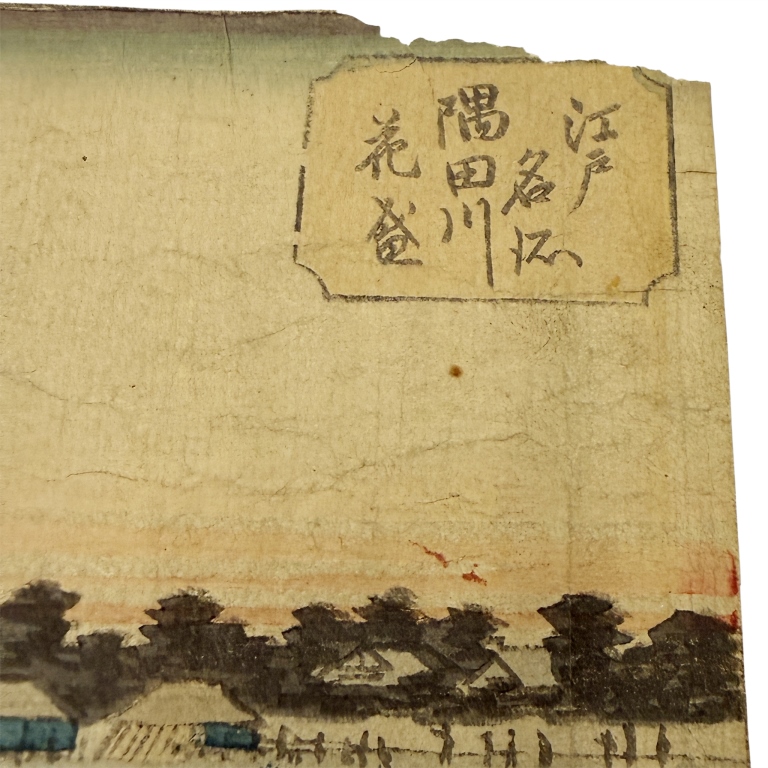 江戸名所
隅田川
花盛